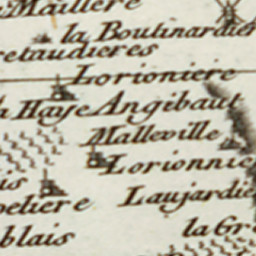 Maillere
la Boutinardier
retaudieres
Lorioniere
Haye Angibaut
Malleville
Lorionnie
is
Laujardie
peliere
la Gr
blais